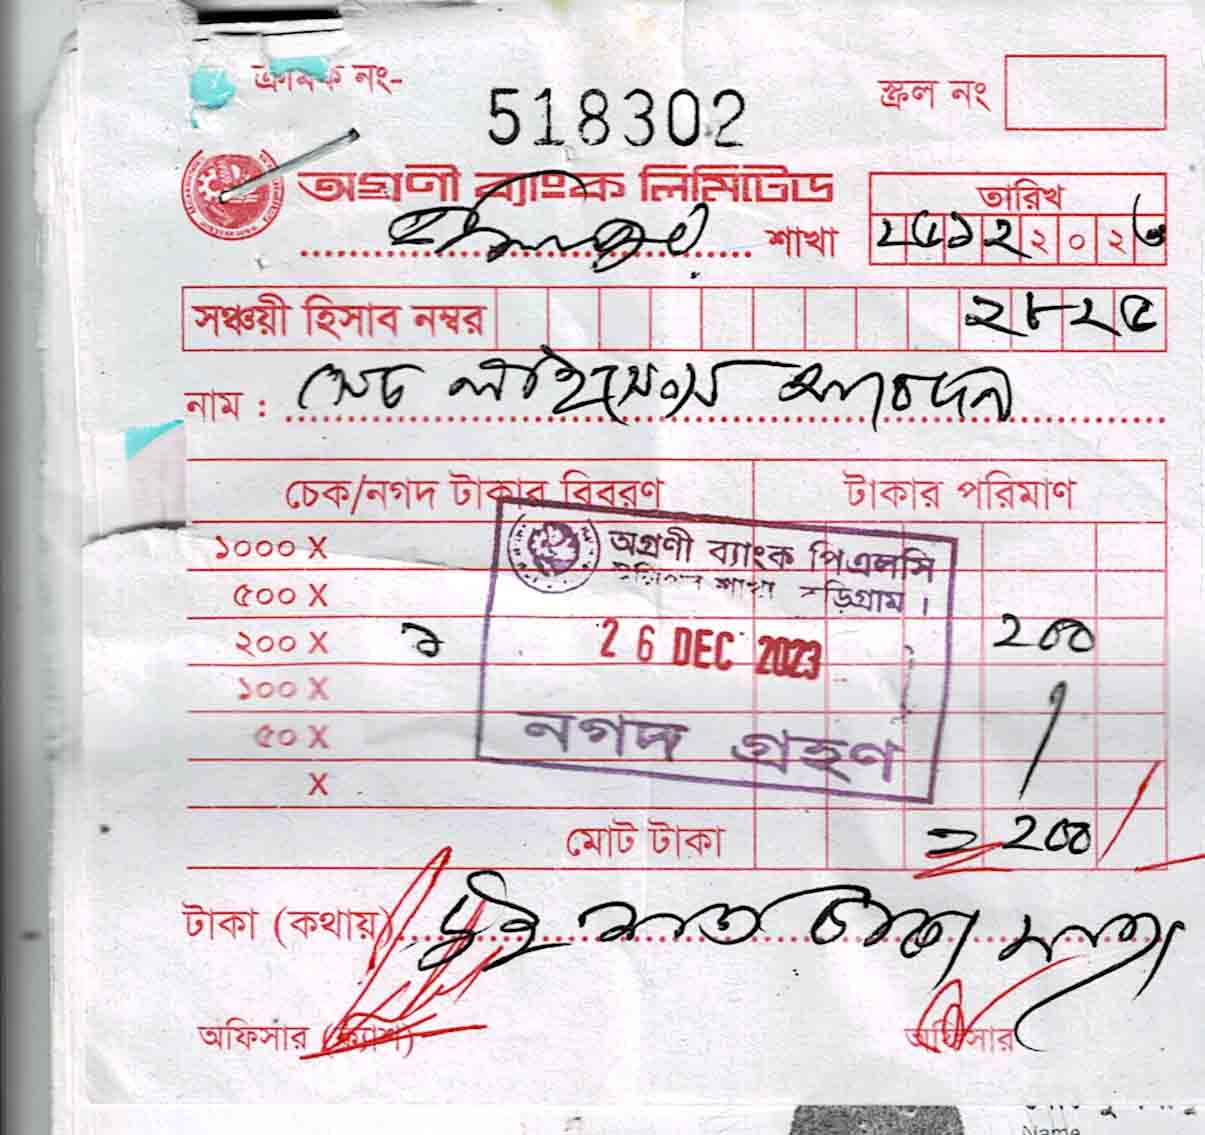 ক্রমিক নং-
518302
স্ক্রল নং
অগ্রণী ব্যাংক লিমিটেড
তারিখ
শাখা
২০২৩
সঞ্চয়ী হিসাব নম্বর ২৮২৫
নাম :
চেক/নগদ টাকার বিবরণ টাকার পরিমাণ
অগ্রণী ব্যাংক পিএলসি
শাখা
১০০০ X
৫০০ X
২০০ X ১ ২০০
26 DEC 2023
১০০ X
৫০ X
নগদ গ্রহণ
X
মোট টাকা = ২০০/
টাকা (কথায়) দুই শত টাকা মাত্র
অফিসার (ক্যাশ) অফিসার
Name